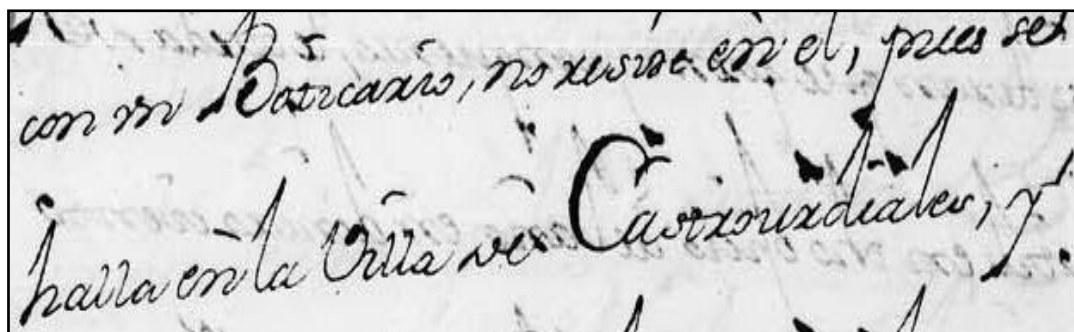 con un Boticario, no reside en el, pues se
halla en la Villa de Castrourdiales, y